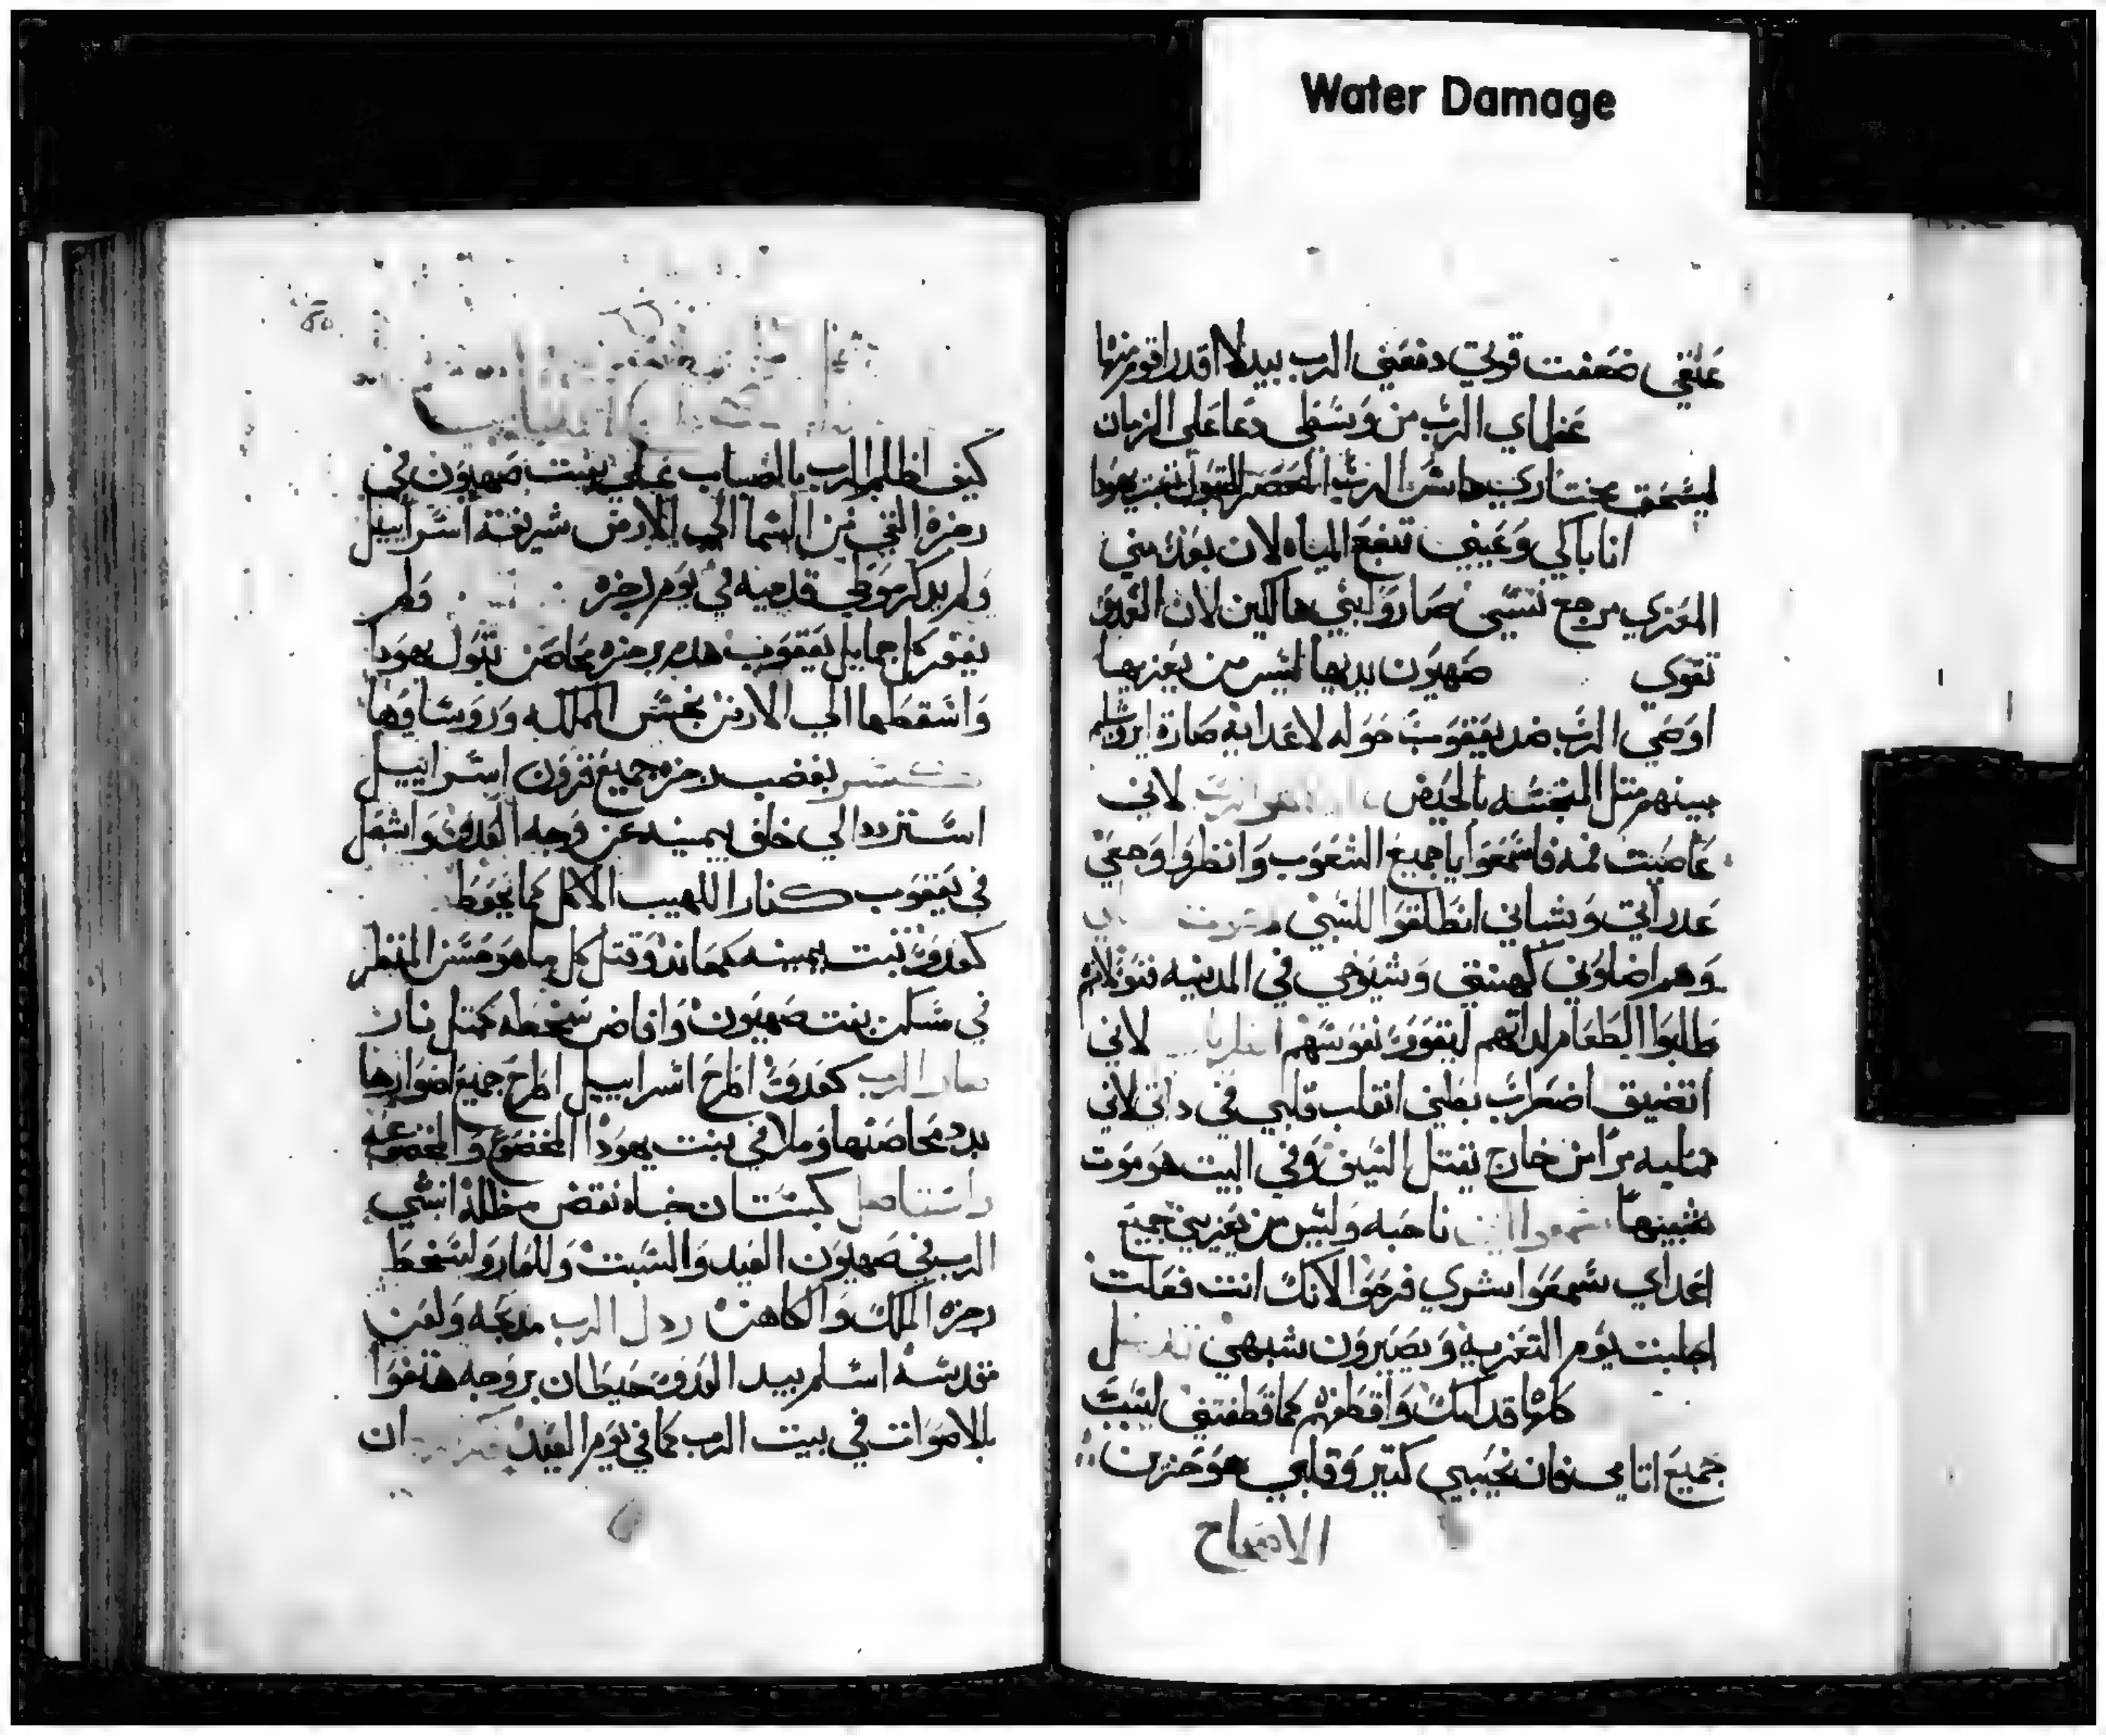 Water Damage
عنقي ضعفت قوتي دفعني الرب بيد لا اقدر اقوم منها
عظماي الرب من وسطي دعا علي الزمان
ليسحق مختاري داس الرب المعصر البتول بنت يهودا
انا باكي وعيني تنبع المياه لان بعد مني
المعزي مرجع نفسي صاروا بني هالكين لان العدو
تقوي صهيون يديها ليس من يعزيها
اوصي الرب ضد يعقوب حوله لاعدايه صارة ايروشليم
بينهم مثل المنجسه بالحيض لاني
عاصيت فمه فاسمعوا يا جميع الشعوب وانظروا وجعي
عدراتي وشباني انطلقوا للسبي
وهم اضلوني كهنتي وشيوخي في المدينه فنوا لانهم
طلبوا الطعام لداتهم ليقوو نفوسهم لاني
اتضيق اضطراب بطني انقلب قلبي في داتي لاني
ممتليه مرا من خارج يقتل السيف وفي البيت هو موت
شبيهها ناحبه وليس من يعزيني جميع
اعداي سمعوا بشري فرحوا لانك انت فعلت
اجلبت يوم التعزيه ويصيرون شبهي
كلها قدامك واقطفهم كما قطفتني لسبب
جميع اتامي فان نحيبي كتير وقلبي هو حزين
الاصحاح
كيف اظلم الرب بالضباب علي بنت صهيون في
رجزه القي من السما الي الارض شريفة اسراييل
ولم يدكر موطي قدميه في يوم رجزه ولم
يعفر كل جمايل يعقوب هدم برجزه محاصن بتول يهودا
واسقطها الي الارض نجس الملك وروساوها
كسر بغضب رجزه جميع قرون اسراييل
استرد الي خلف يمينه عن وجه العدو واشعل
في يعقوب كنار اللهيب الاكل كما يحوط
كعدو تبت يمينه كمعاند وقتل كل ما هو حسن المنظر
في مسكن بنت صهيون وافاض سخطه كمتل نار
صار الرب كعدو اطرح اسراييل اطرح جميع اصوارها
بدد محاصنها وملا في بنت يهودا المخضوع والمخضوعه
واستاصل كبستان خباه نقض مظلة انسي
الرب في صهيون العيد والسبت وللعار ولسخط
رجزه الملك والكاهن ردل الرب مدبحه ولعن
مقدسه اسلم بيد العدو حيطان بروجه هتفوا
بالاصوات في بيت الرب كما في يوم العيد ان